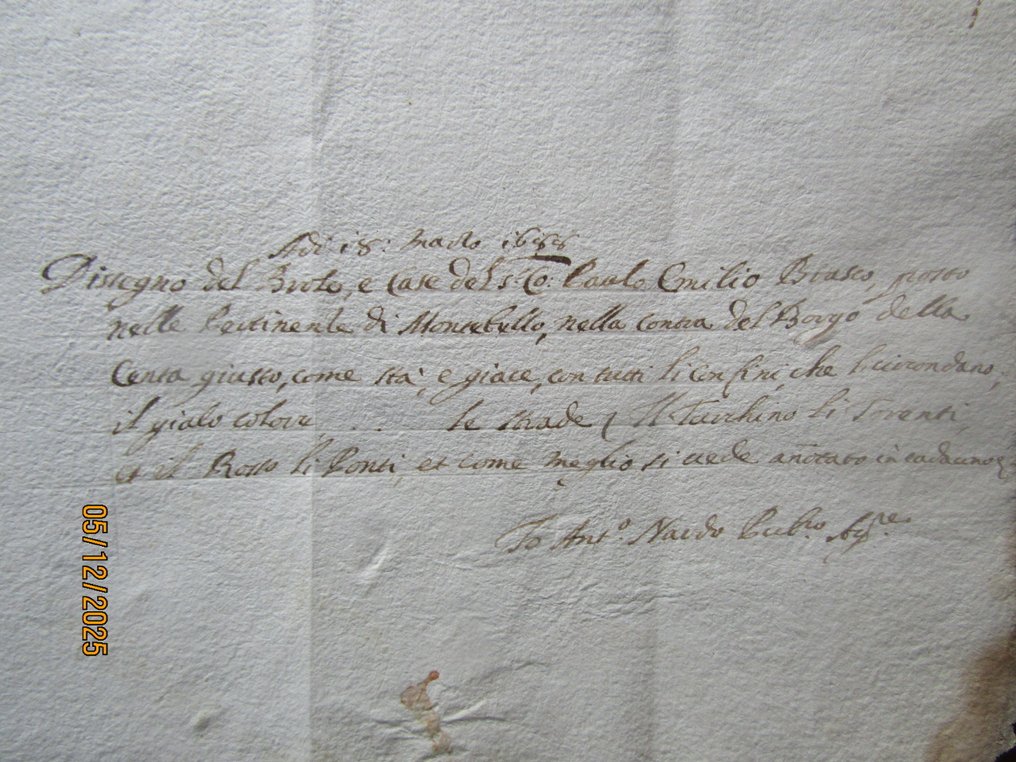 Adi 18: Marzo 1688
Dissegno del Broto, e Case del S.r Co: Paulo Emilio Brasco, posto
nelle Pertinente di Montebello, nella contra del Borgo della
Centa giusto, come stà, e giace, con tutti li confini, che li circondano,
il gialo colore . . . le strade Il Turchino li Torenti
et il Rosso li Ponti, et come meglio si vede añotato in cadauno
Io Ant.o Nardo Pub.o
05/12/2025